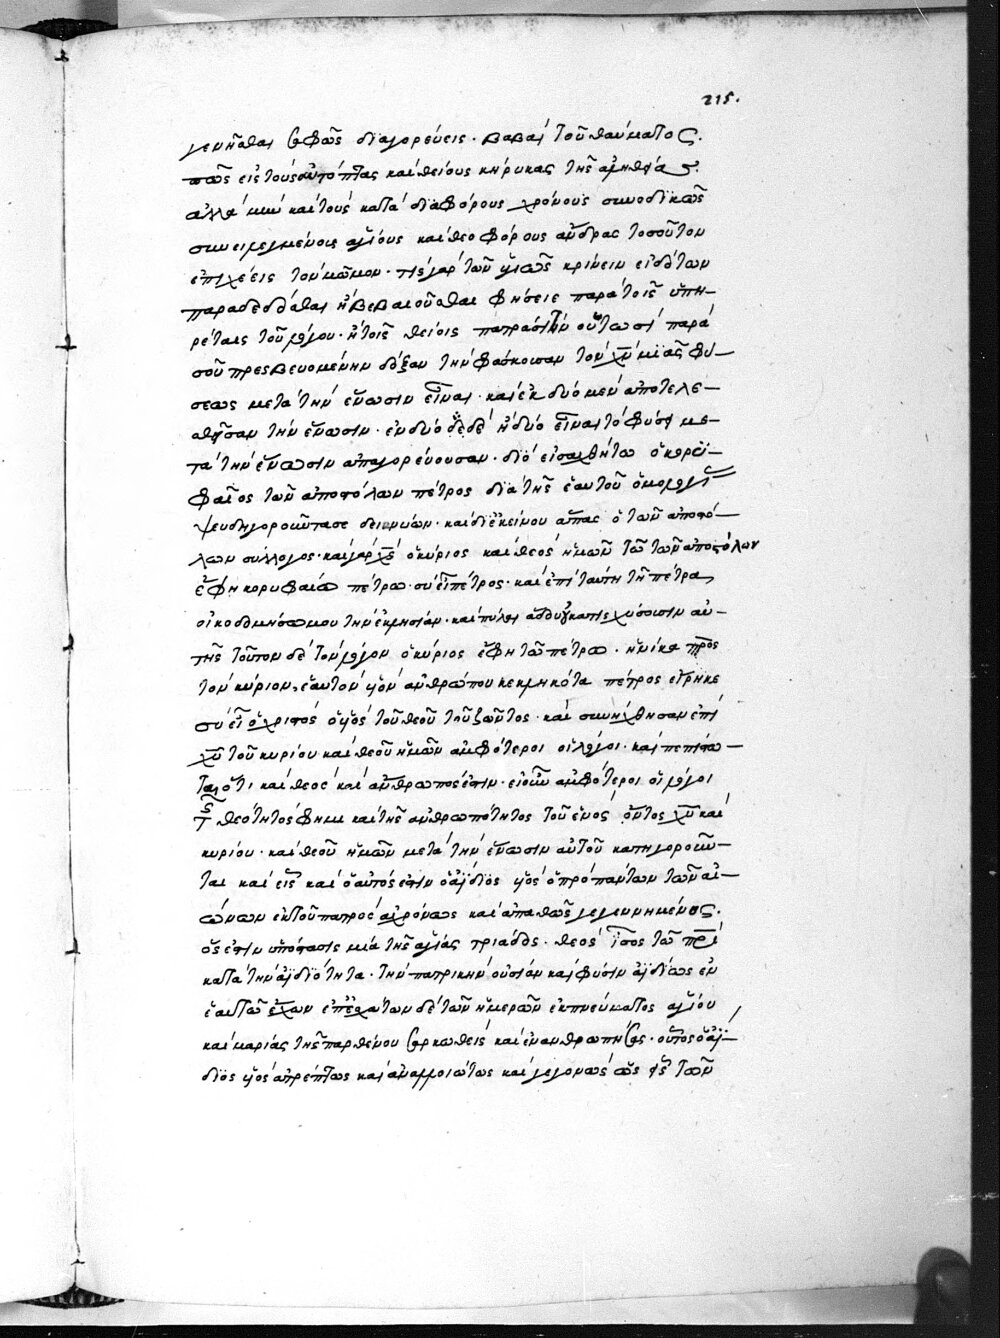 215.
γεννᾶσθαι σαφῶς διαγορεύεις · βαβαὶ τοῦ θαύματος.
πῶς εἰς τοὺς αὐτόπτας καὶ θείους κήρυκας τῆς ἀληθείας.
ἀλλὰ μὴν καὶ τοὺς κατὰ διαφόρους χρόνους συνοδικῶς
συνειλεγμένους ἁγίους καὶ θεοφόρους ἄνδρας τοσοῦτον
ἐπιχέεις τὸν μῶμον · τίς γὰρ τῶν ὑγιῶς κρίνειν εἰδότων
παραδεδόσθαι ἢ βεβαιοῦσθαι φήσειε παρὰ τοῖς ὑπη-
ρέταις τοῦ λόγου · ἢ τοῖς θείοις πατράσι τὴν οὕτωσὶ παρὰ
σοῦ πρεσβευομένην δόξαν τὴν φάσκουσαν τὸν χν μιᾶς φύ-
σεως μετὰ τὴν ἕνωσιν εἶναι · καὶ ἐκ δύο μὲν ἀποτελε-
σθῆσαν τὴν ἕνωσιν · ἐν δυὸ δὲ ἢ δύο εἶναι τὸ φύσει με-
τὰ τὴν ἕνωσιν ἀπαγορεύουσαν · διὸ εἰσαχθήτω ὁ κορυ-
φαῖος τῶν ἀποστόλων πέτρος διὰ τῆς ἑαυτοῦ ὁμολογίας
ψευδηγοροῦντά σε δεικνύων · καὶ δι' ἐκείνου ἅπας ὁ τῶν ἀποστό-
λων σύλλογος · καὶ γὰρ χς ὁ κύριος καὶ θεὸς ἡμῶν τῷ τῶν ἀποστόλων
ἔφη κορυφαίῳ πέτρῳ · σὺ εἶ πέτρος · καὶ ἐπὶ ταύτῃ τῇ πέτρᾳ
οἰκοδομήσω μου τὴν ἐκκλησίαν · καὶ πύλαι ἅδου οὐ κατισχύσουσιν αὐ-
τῆς τοῦτον δὲ τὸν λόγον ὁ κύριος ἔφη τῷ πέτρῳ · ἡνίκα πρὸς
τὸν κύριον, ἑαυτὸν υἱὸν ἀνθρώπου κεκληκότα πέτρος εἴρηκε
σὺ εἶ ὁ χριστὸς ὁ υἱὸς τοῦ θεοῦ τοῦ ζῶντος · καὶ συνήχθησαν ἐπὶ
χῦ τοῦ κυρίου καὶ θεοῦ ἡμῶν ἀμφότεροι οἱ λόγοι · καὶ πεπίστω-
ται ὅτι καὶ θεὸς καὶ ἄνθρωπός ἐστιν · εἰ οὖν ἀμφότεροι οἱ λόγοι
τῆς θεότητός φημι καὶ τῆς ἀνθρωπότητος τοῦ ἑνὸς ὄντος χῦ καὶ
κυρίου · καὶ θεοῦ ἡμῶν μετὰ τὴν ἕνωσιν αὐτοῦ κατηγοροῦν-
ται καὶ εἷς καὶ ὁ αὐτός ἐστιν ὁ ἀΐδιος υἱὸς ὁ πρὸ πάντων τῶν αἰ-
ώνων ἐκ τοῦ πατρὸς ἀχρόνως καὶ ἀπαθῶς γεγεννημένος.
ὅς ἐστιν ὑπόστασις μία τῆς ἁγίας τριάδος · θεὸς ἴσος τῷ πρὶ
κατὰ τὴν ἀϊδιότητα · τὴν πατρικὴν οὐσίαν καὶ φύσιν ἀϊδίως ἐν
ἑαυτῷ ἔχων ἐπ' ἐσχάτων δὲ τῶν ἡμερῶν ἐκ πνεύματος ἁγίου
καὶ μαρίας τῆς παρθένου σαρκωθεὶς καὶ ἐνανθρωπήσας · οὗτος ὁ ἀΐ-
διος υἱὸς ἀτρέπτως καὶ ἀναλλοιώτως καὶ γεγονὼς ὡς εἷς τῶν